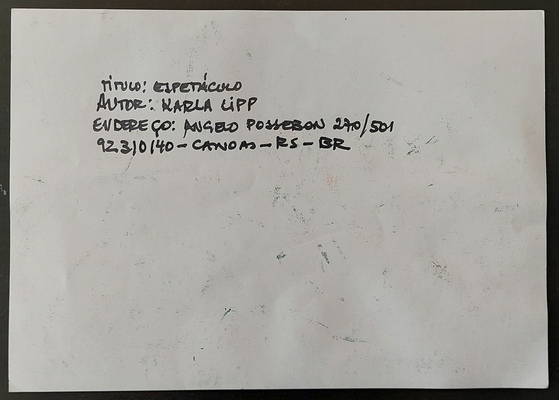 TÍTULO: ESPETÁCULO
AUTOR: KARLA LIPP
ENDEREÇO: ANGELO POSSEBON 270/501
92310140 - CANOAS - RS - BR